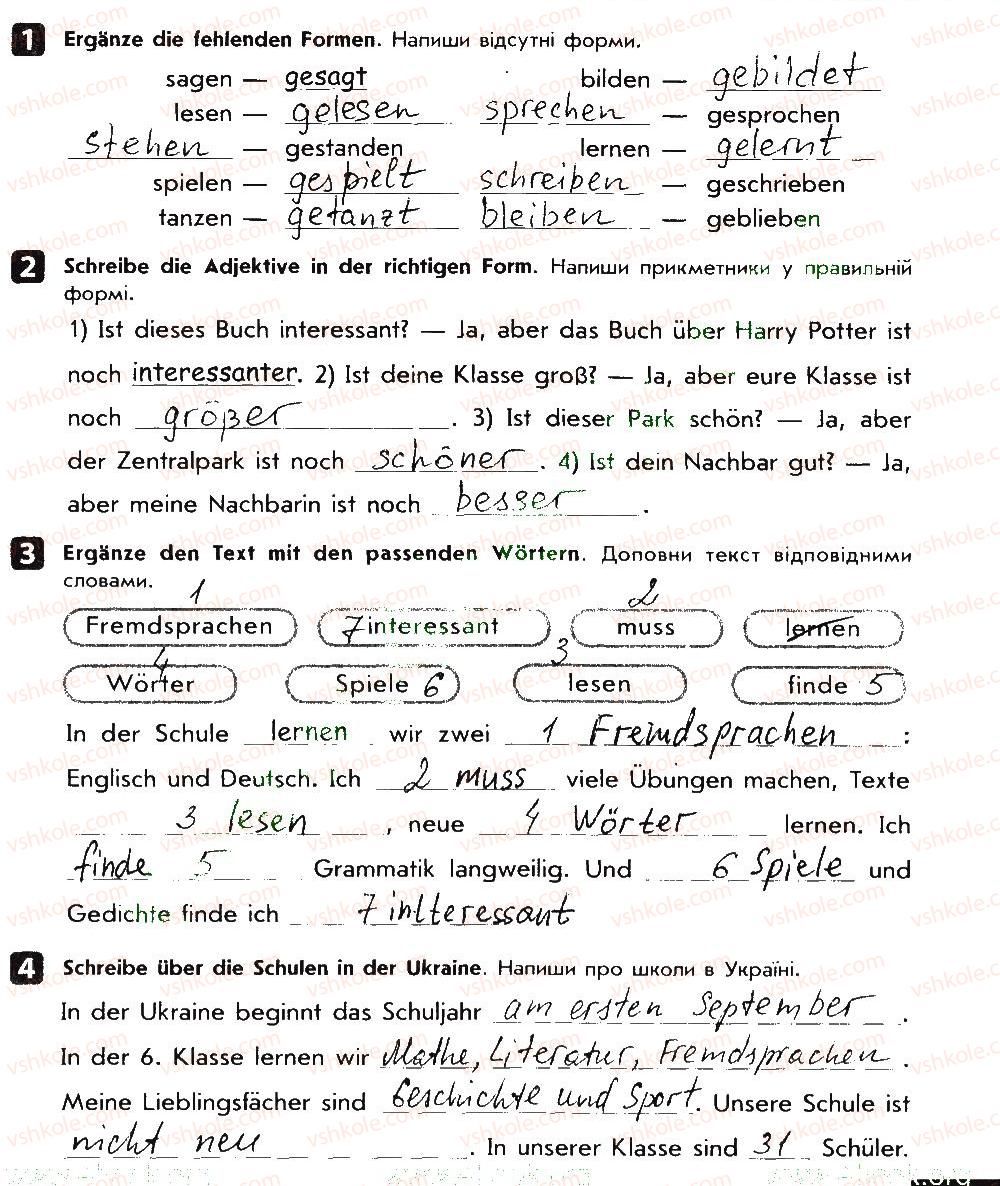 1 Ergänze die fehlenden Formen. Напиши відсутні форми.
sagen — gesagt bilden — gebildet
lesen — gelesen sprechen — gesprochen
stehen — gestanden lernen — gelernt
spielen — gespielt schreiben — geschrieben
tanzen — getanzt bleiben — geblieben
2 Schreibe die Adjektive in der richtigen Form. Напиши прикметники у правильній
формі.
1) Ist dieses Buch interessant? — Ja, aber das Buch über Harry Potter ist
noch interessanter. 2) Ist deine Klasse groß? — Ja, aber eure Klasse ist
noch größer. 3) Ist dieser Park schön? — Ja, aber
der Zentralpark ist noch schöner. 4) Ist dein Nachbar gut? — Ja,
aber meine Nachbarin ist noch besser.
3 Ergänze den Text mit den passenden Wörtern. Доповни текст відповідними
словами.
1 2
Fremdsprachen 7 interessant muss lernen
4 3
Wörter Spiele 6 lesen finde 5
In der Schule lernen wir zwei 1 Fremdsprachen :
Englisch und Deutsch. Ich 2 muss viele Übungen machen, Texte
3 lesen, neue 4 Wörter lernen. Ich
finde 5 Grammatik langweilig. Und 6 Spiele und
Gedichte finde ich 7 intteressant
4 Schreibe über die Schulen in der Ukraine. Напиши про школи в Україні.
In der Ukraine beginnt das Schuljahr am ersten September.
In der 6. Klasse lernen wir Mathe, Literatur, Fremdsprachen.
Meine Lieblingsfächer sind Geschichte und Sport. Unsere Schule ist
nicht neu. In unserer Klasse sind 31 Schüler.